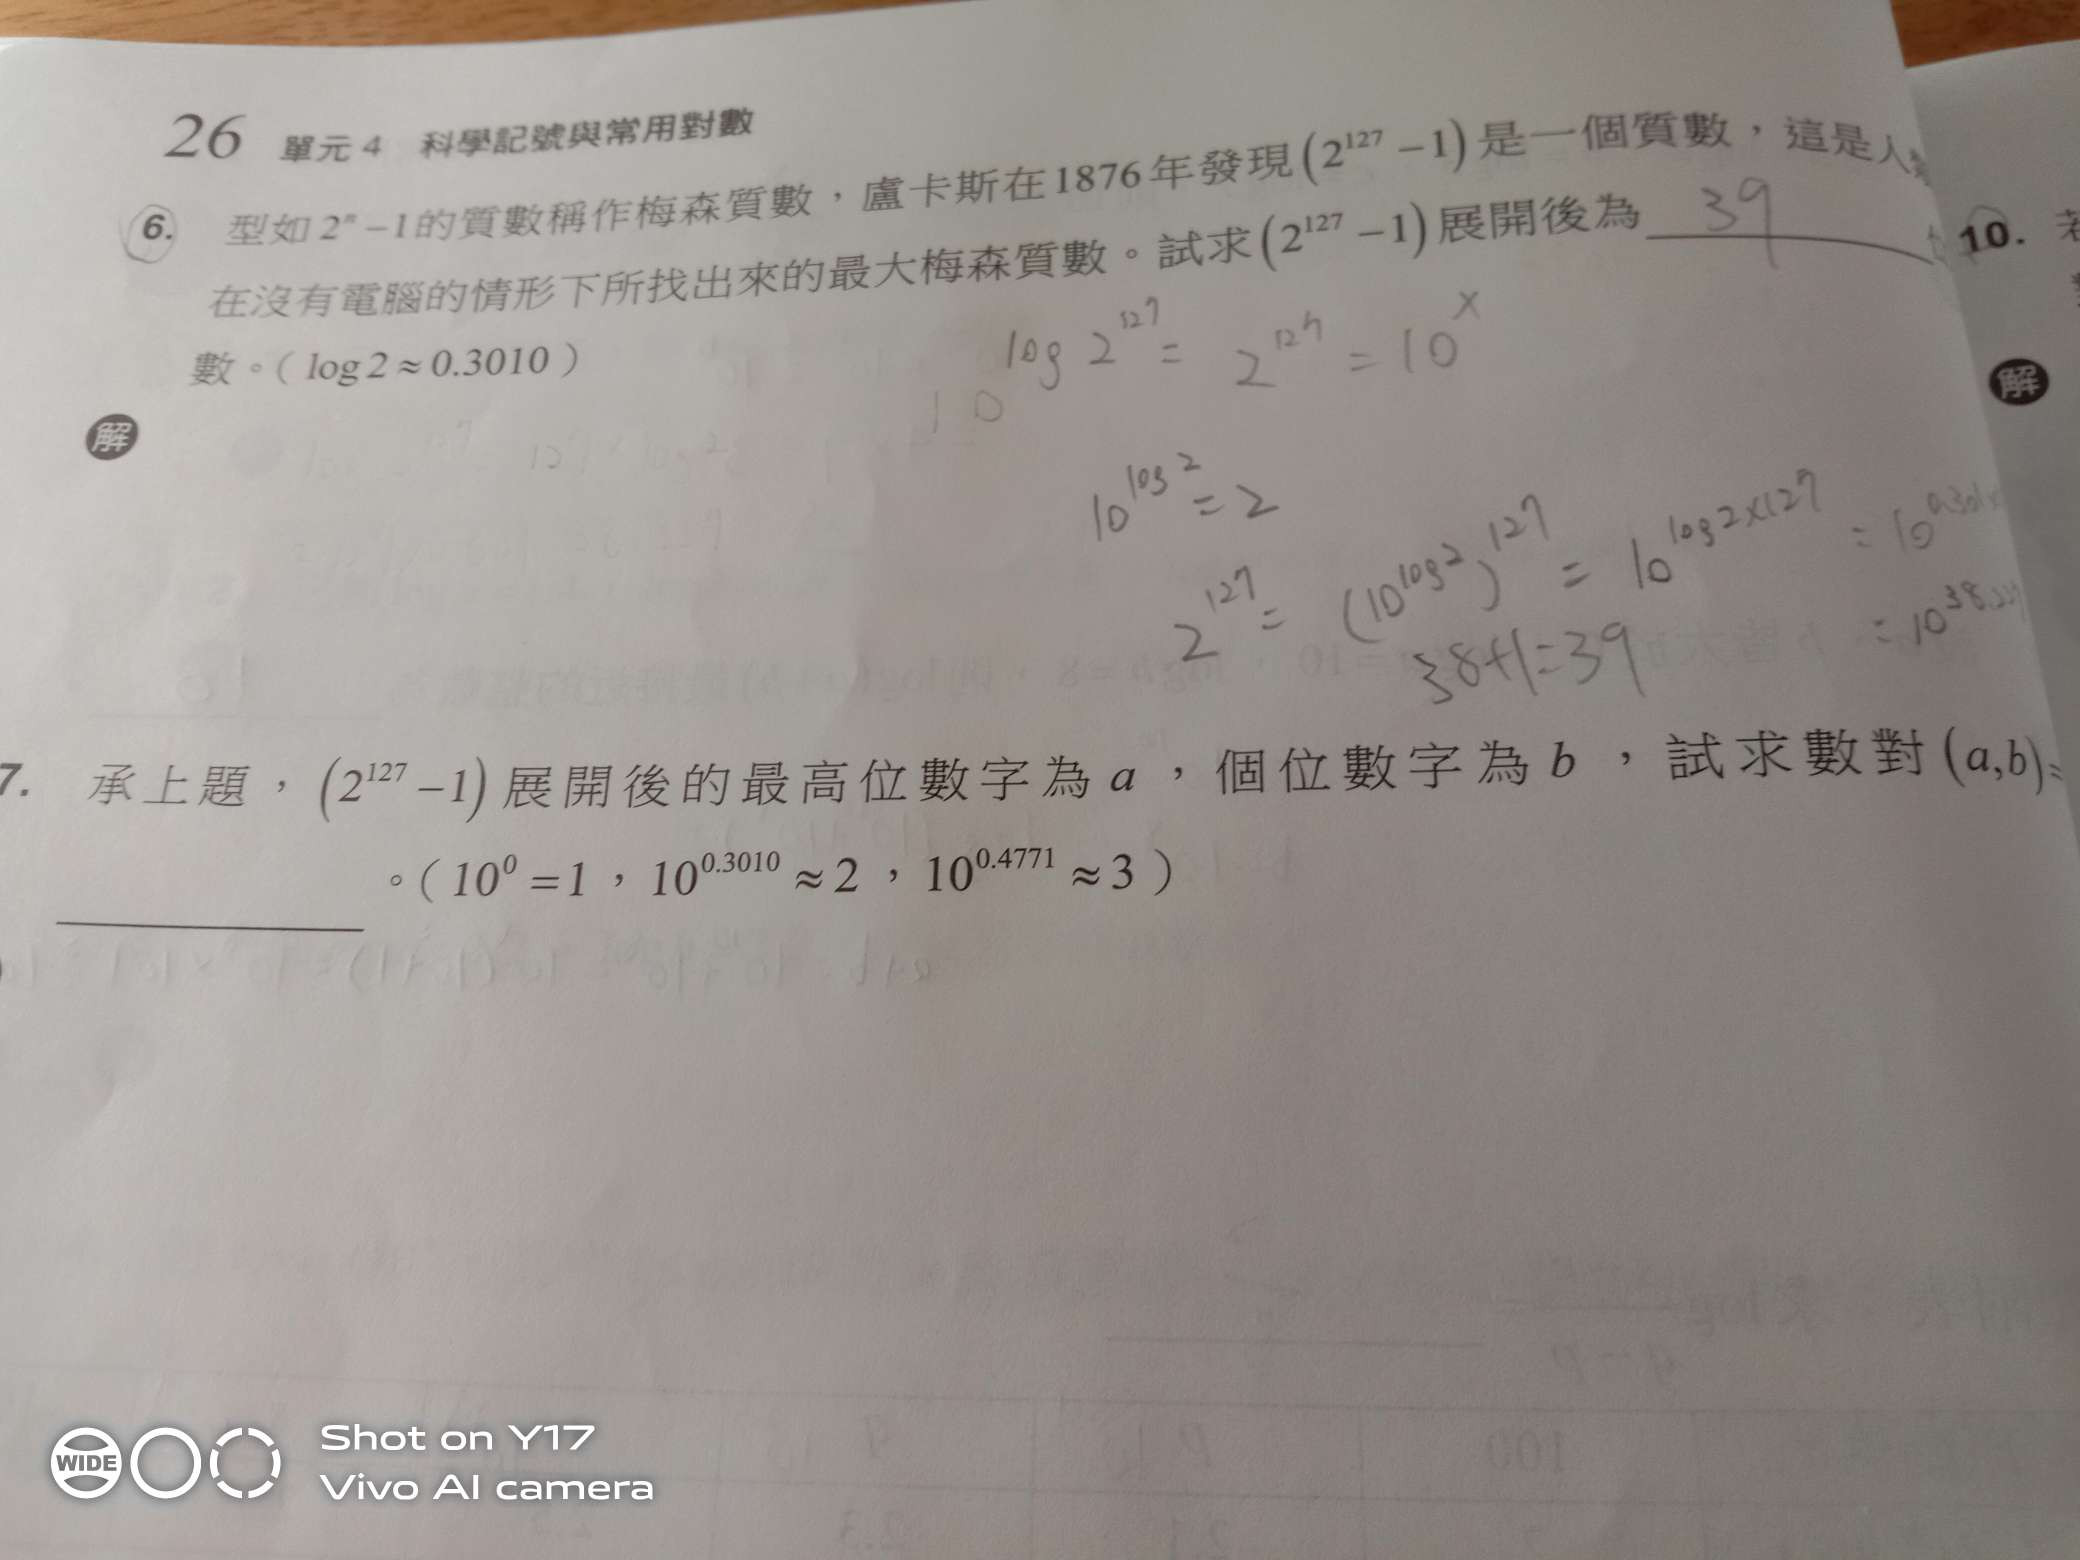 26 單元 4 科學記號與常用對數
6. 型如 2ⁿ −1的質數稱作梅森質數，盧卡斯在1876年發現(2¹²⁷ −1)是一個質數，這是人
在沒有電腦的情形下所找出來的最大梅森質數。試求(2¹²⁷ −1)展開後為 39
數。( log 2 ≈ 0.3010 )
log 2¹²⁷ = 2¹²⁷ = 10ˣ
10
解
10^log 2 = 2
2¹²⁷ = (10^log 2)¹²⁷ = 10^log 2×127 = 10
38+1=39
= 10
7. 承上題，(2¹²⁷ −1)展開後的最高位數字為 a，個位數字為 b，試求數對(a,b)=
。( 10⁰ =1，10^0.3010 ≈ 2，10^0.4771 ≈ 3 )
10.
解
WIDE
Shot on Y17
Vivo AI camera